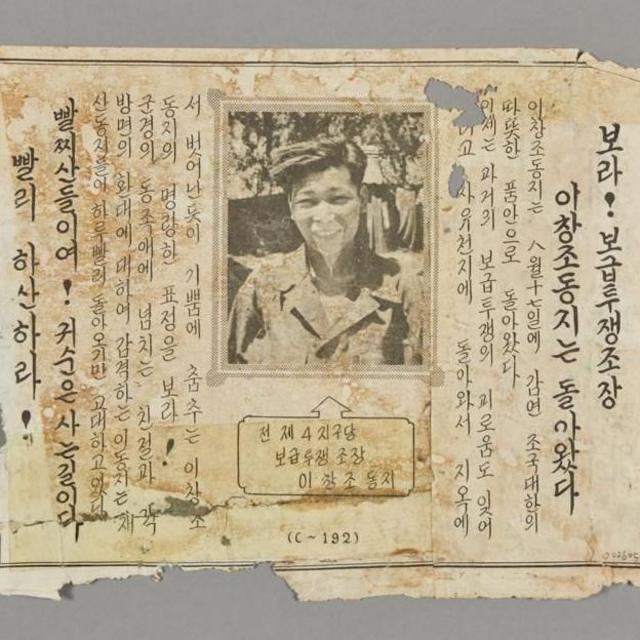 보라! 보급투쟁조장
이창조동지는 돌아왔다
이창조동지는 八월十七일에 감면 조국대한의
따뜻한 품안으로 돌아왔다
이제는 과거의 보급투쟁의 괴로움도 잊어
고 자유천지에 돌아와서 지옥에
서 벗어난듯이 기쁨에 춤추는 이창조
동지의 명랑한 표정을 보라!
군경의 동족애에 넘치는 친절과 각
방면의 환대에 대하여 감격하는 이동지는 재
산동지들이 하루빨리 돌아오기만 고대하고 있다
빨찌산들이여! 귀순은 사는길이다
빨리 하산하라!
전 제4지구당
보급투쟁조장
이창조동지
(C~192)